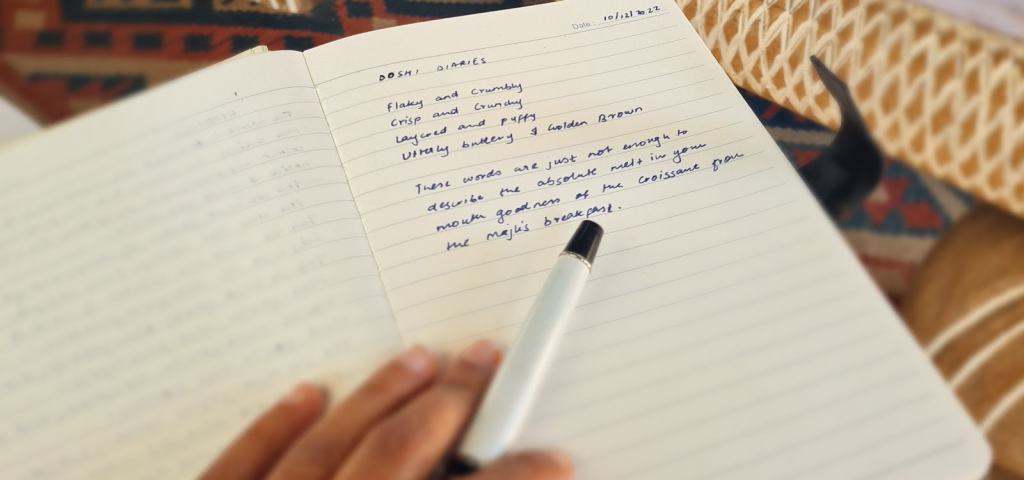 Date: 10/12/2022
DOSHI DIARIES
Flaky and Crumbly
Crisp and Crunchy
Layered and Puffy
Utterly buttery & Golden Brown
These words are just not enough to
describe the absolute melt in your
mouth goodness of the croissant from
the majlis breakfast.